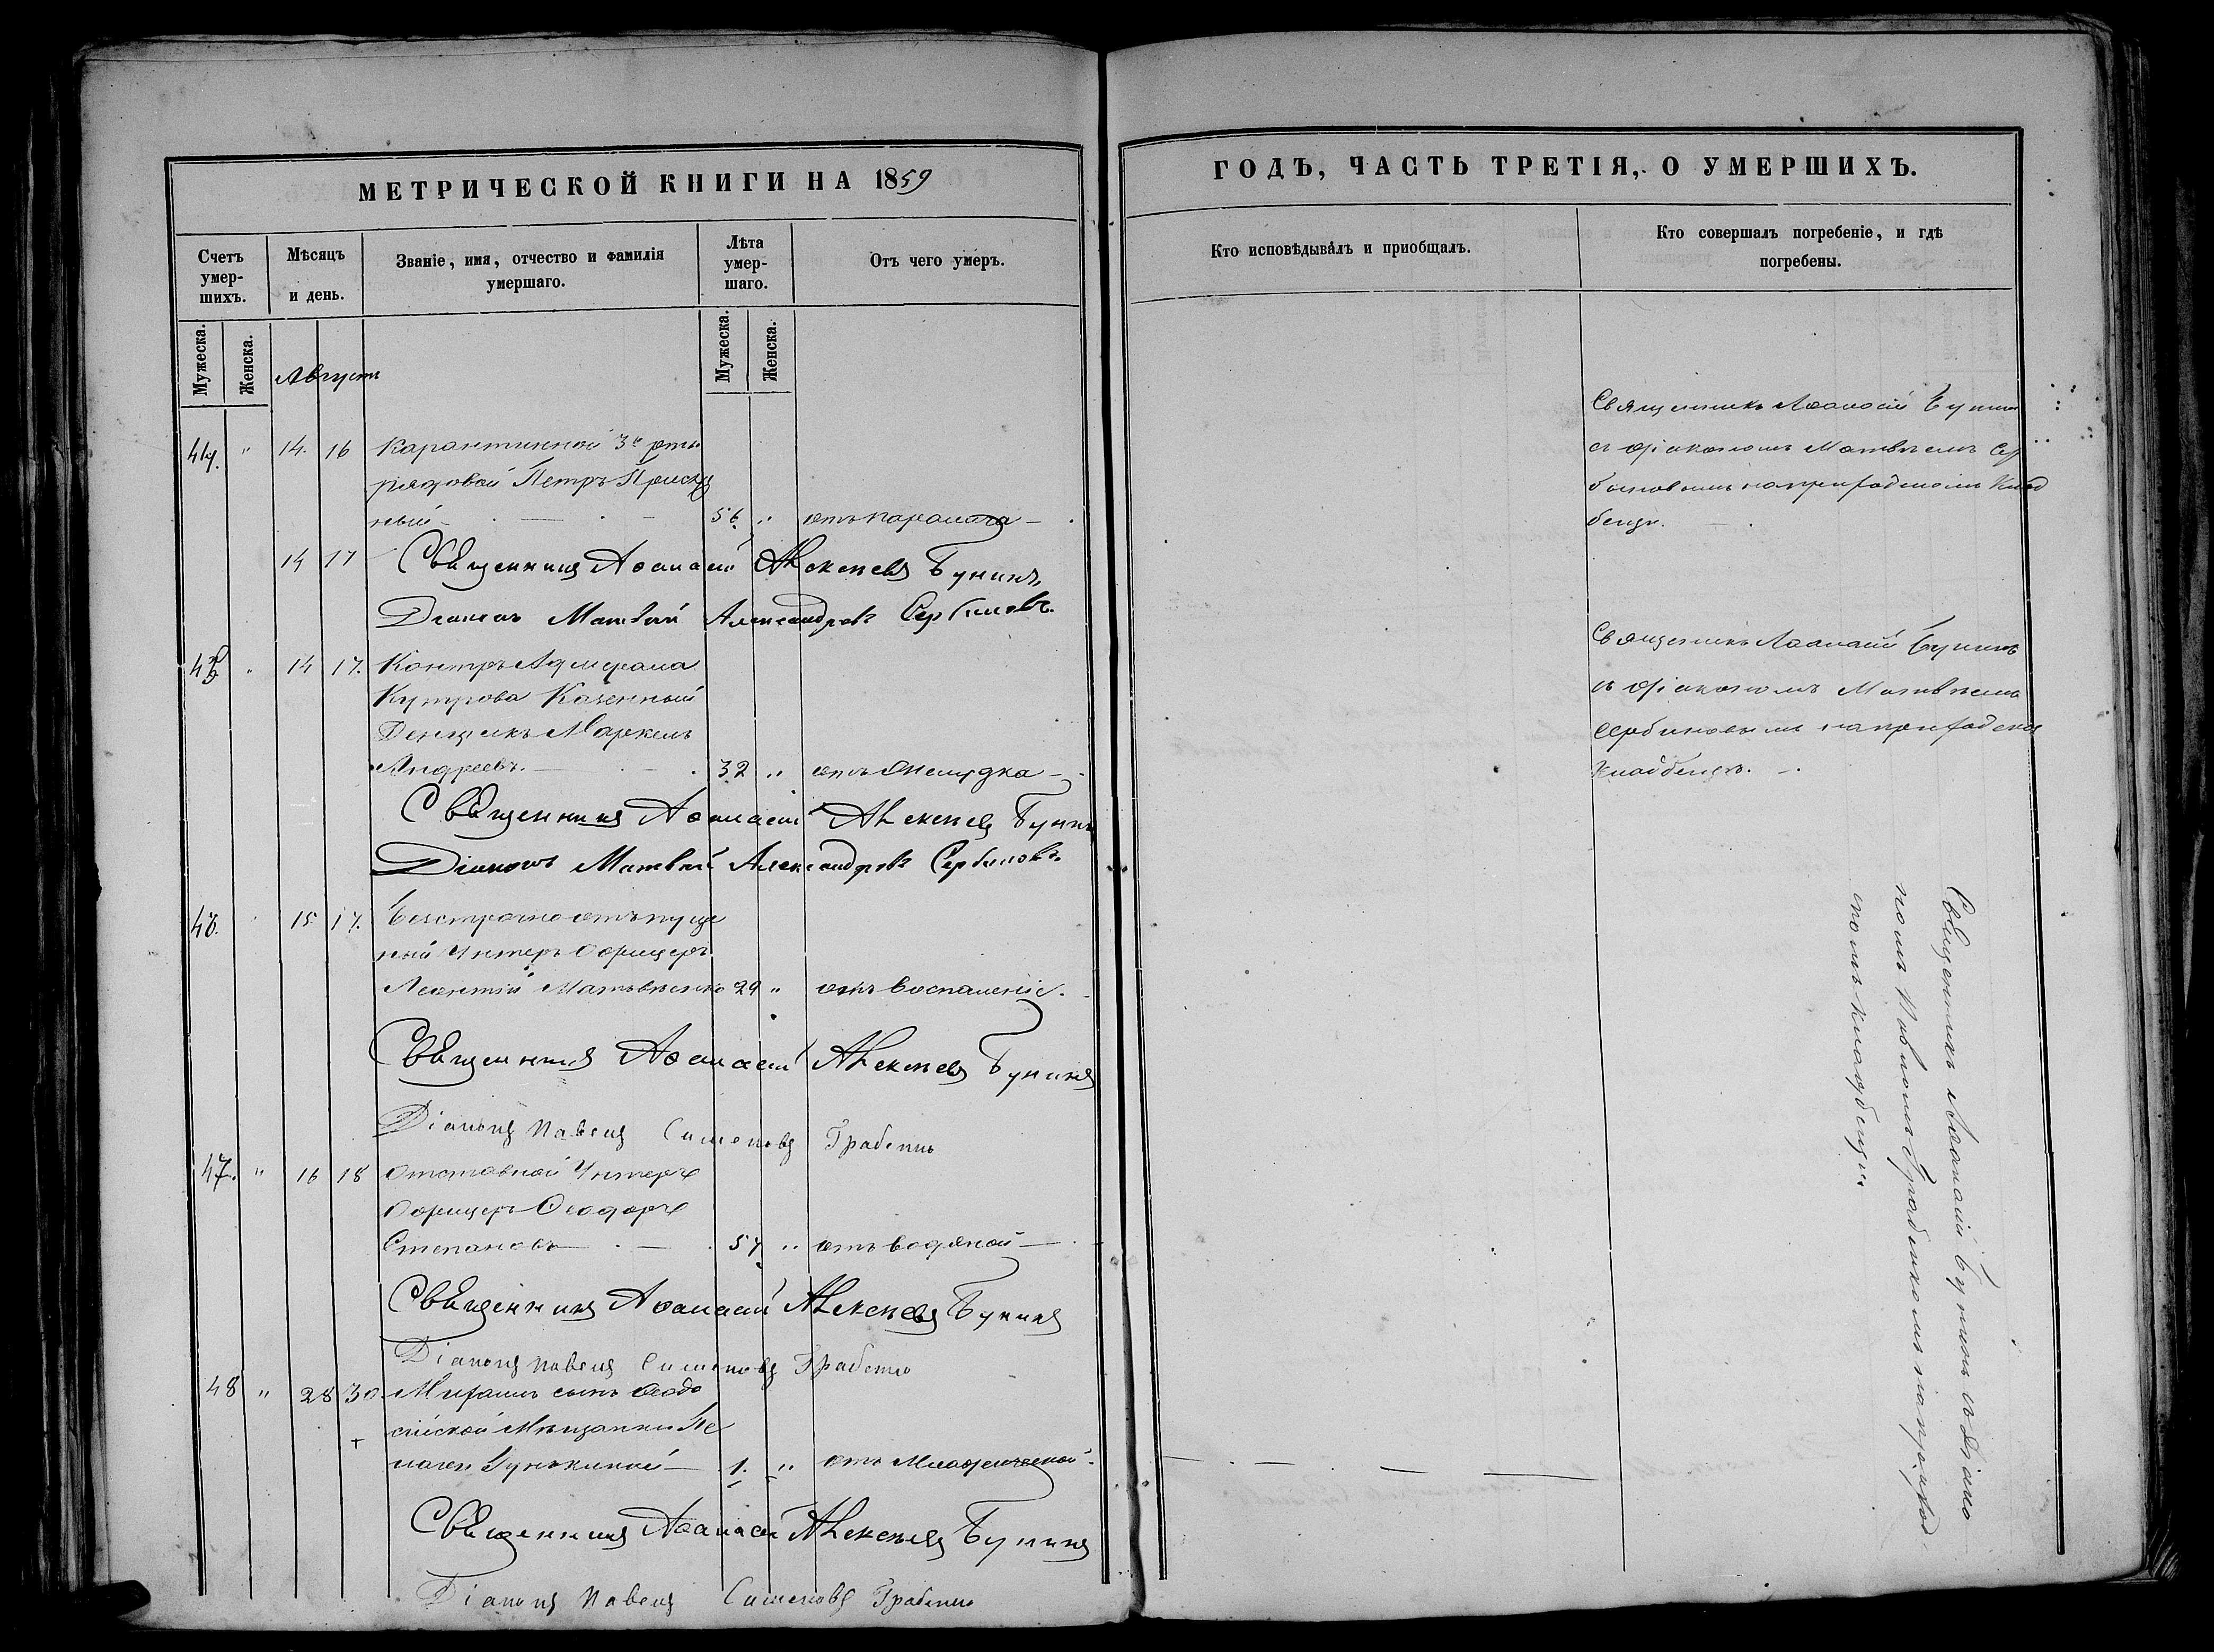 МЕТРИЧЕСКОЙ КНИГИ НА 1859
Счетъ умер-шихъ.
Мѣсяцъ и день.
Званіе, имя, отчество и фамилія умершаго.
Лѣта умер-шаго.
Отъ чего умеръ.
Мужеска.
Женска.
Августъ
Мужеска.
Женска.
44. " 14. 16 Карантинной 3й роты
рядовой Петръ
ный 56 " отъ паралича
14 17 Священникъ Аѳанасій Алексѣевъ Бунинъ
Діаконъ Матвѣй Александровъ Сербиновъ.
45 " 14 17. Контръ Адмирала
Кутрова Казенный
Деньщикъ Маркелъ
Андреевъ. 32 " отъ желудка
Священникъ Аѳанасій Алексѣевъ Бунинъ
Діаконъ Матвѣй Александровъ Сербиновъ.
46. 15 17. Безсрочно отъпуще
ный Унтеръ Офицеръ
Леонтій Матвѣенко 29 " отъ воспаленіе.
Священникъ Аѳанасій Алексѣевъ Бунинъ
Діаконъ Павелъ Симеоновъ Грабенко
47. " 16 18 Отставной Унтеръ
Офицеръ Ѳеодоръ
Степановъ 57 " отъ водяной
Священникъ Аѳанасій Алексѣевъ Бунинъ
Діаконъ Павелъ Симеоновъ Грабенко
48 " 28 30. Михаилъ сынъ Ѳеодо
сійской Мѣщанки Пе
лагеи 1. " отъ Младенческой.
Священникъ Аѳанасій Алексѣевъ Бунинъ
Діаконъ Павелъ Симеоновъ Грабенко
ГОДЪ, ЧАСТЬ ТРЕТІЯ, О УМЕРШИХЪ.
Кто исповѣдывалъ и пріобщалъ.
Кто совершалъ погребеніе, и гдѣ погребены.
Священникъ Аѳанасій Бунинъ
съ діакономъ Матвѣемъ Сер
биновымъ на приходскомъ Клад
бищѣ.
Священникъ Аѳанасій Бунинъ
съ діакономъ Матвѣемъ
Сербиновымъ на приходском
Кладбищѣ.
Священникъ Аѳанасій Бунинъ съ Діако
номъ Павломъ Грабенкомъ на приход
скомъ кладбищѣ.